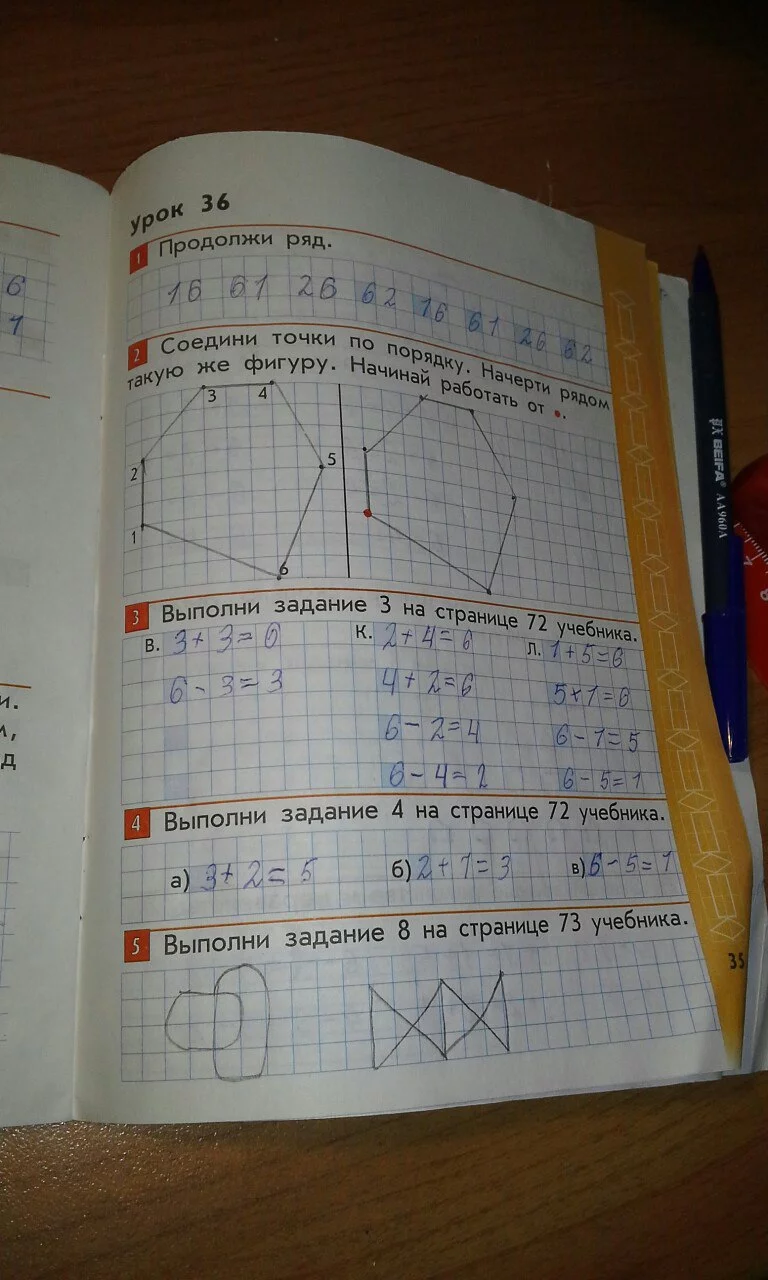 6
1
и.
м,
д
Урок 36
1 Продолжи ряд.
16 61 26 62 16 61 26 62
2 Соедини точки по порядку. Начерти рядом
такую же фигуру. Начинай работать от •.
3 4
2 5
1
6
3 Выполни задание 3 на странице 72 учебника.
В. 3+3=6 К. 2+4=6 Л. 1+5=6
6-3=3 4+2=6 5+1=6
6-2=4 6-1=5
6-4=2 6-5=1
4 Выполни задание 4 на странице 72 учебника.
а) 3+2=5 б) 2+1=3 в) 6-5=1
5 Выполни задание 8 на странице 73 учебника.
35
BEIFA AA960A